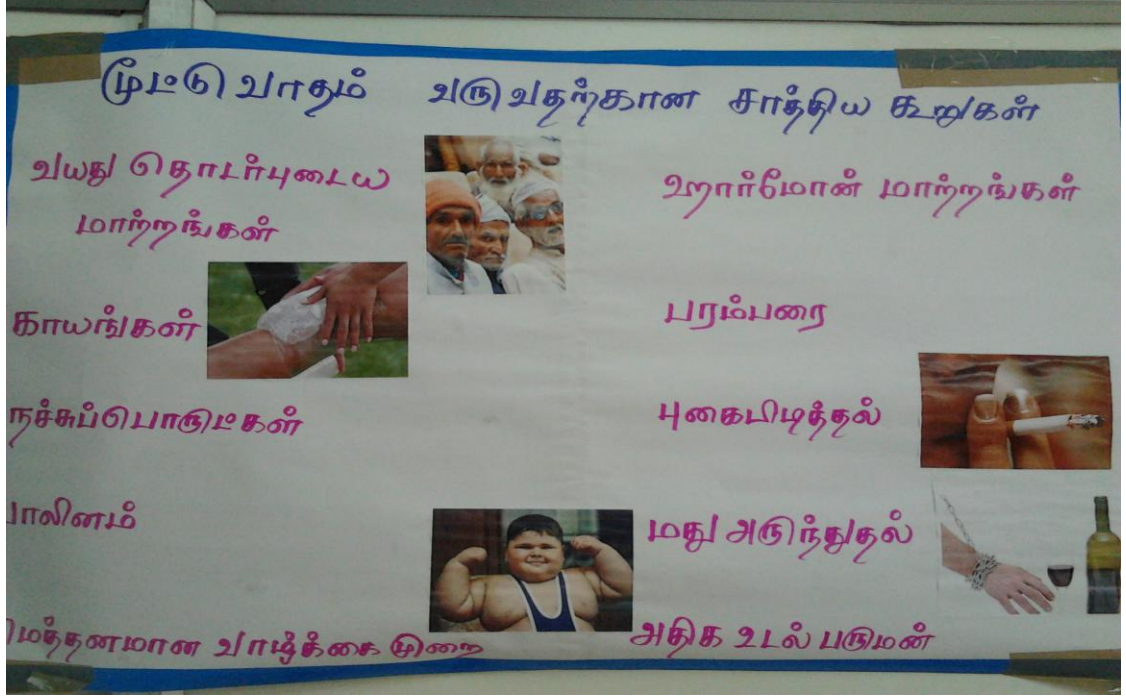 மூட்டு வாதம் வருவதற்கான சாத்திய கூறுகள்
வயது தொடர்புடைய
மாற்றங்கள்
காயங்கள்
நச்சுப்பொருட்கள்
பாலினம்
வாழ்க்கை முறை
ஹார்மோன் மாற்றங்கள்
பரம்பரை
புகைபிடித்தல்
மது அருந்துதல்
அதிக உடல் பருமன்